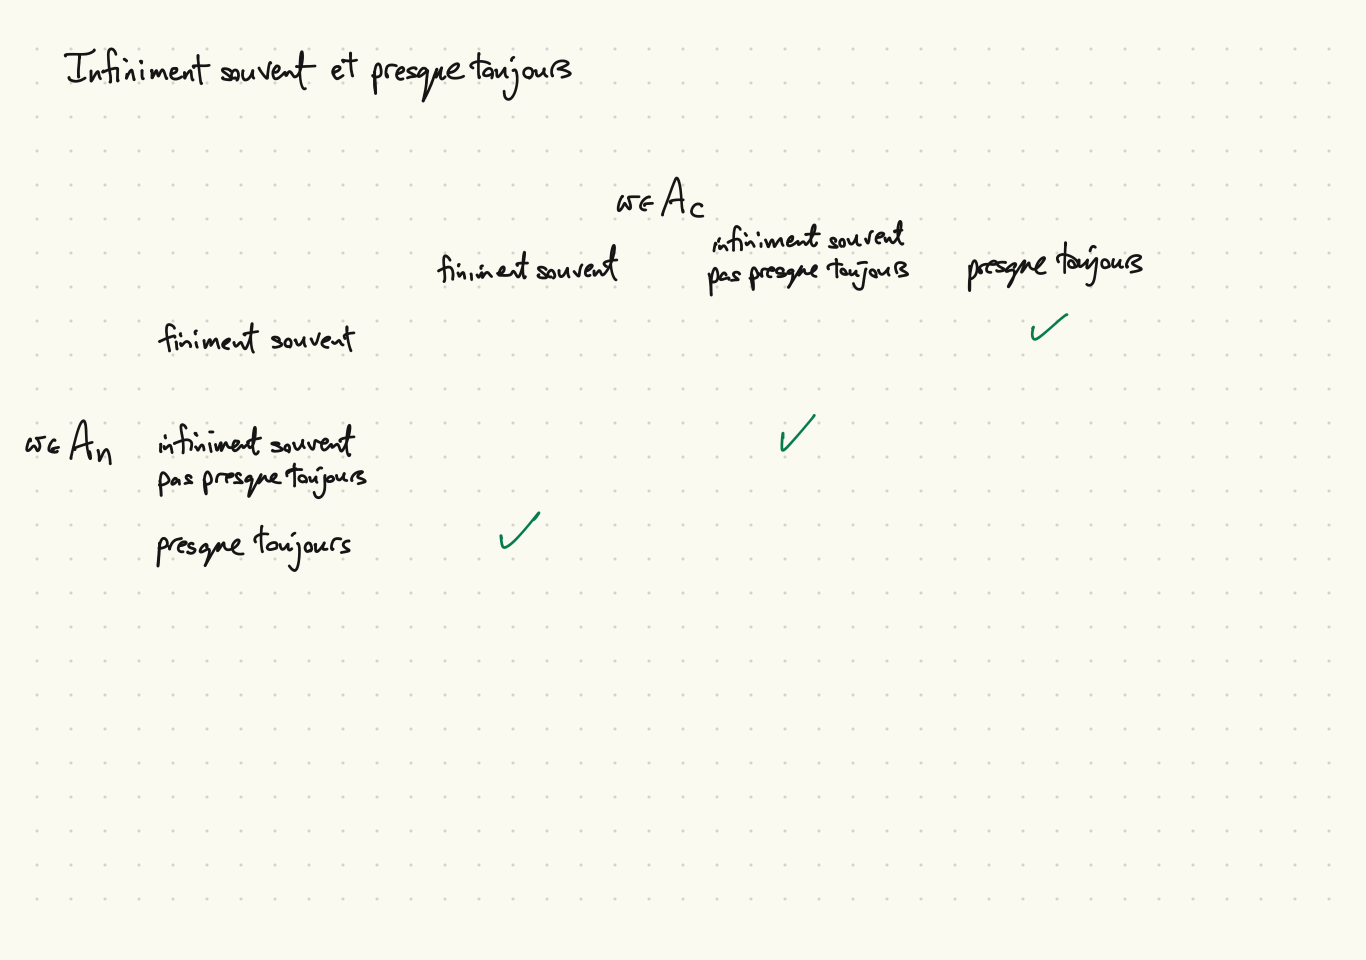 Infiniment souvent et presque toujours
ω∈ A_c
finiment souvent
infiniment souvent
pas presque toujours
presque toujours
finiment souvent
✓
ω∈ A_n
infiniment souvent
pas presque toujours
✓
presque toujours
✓